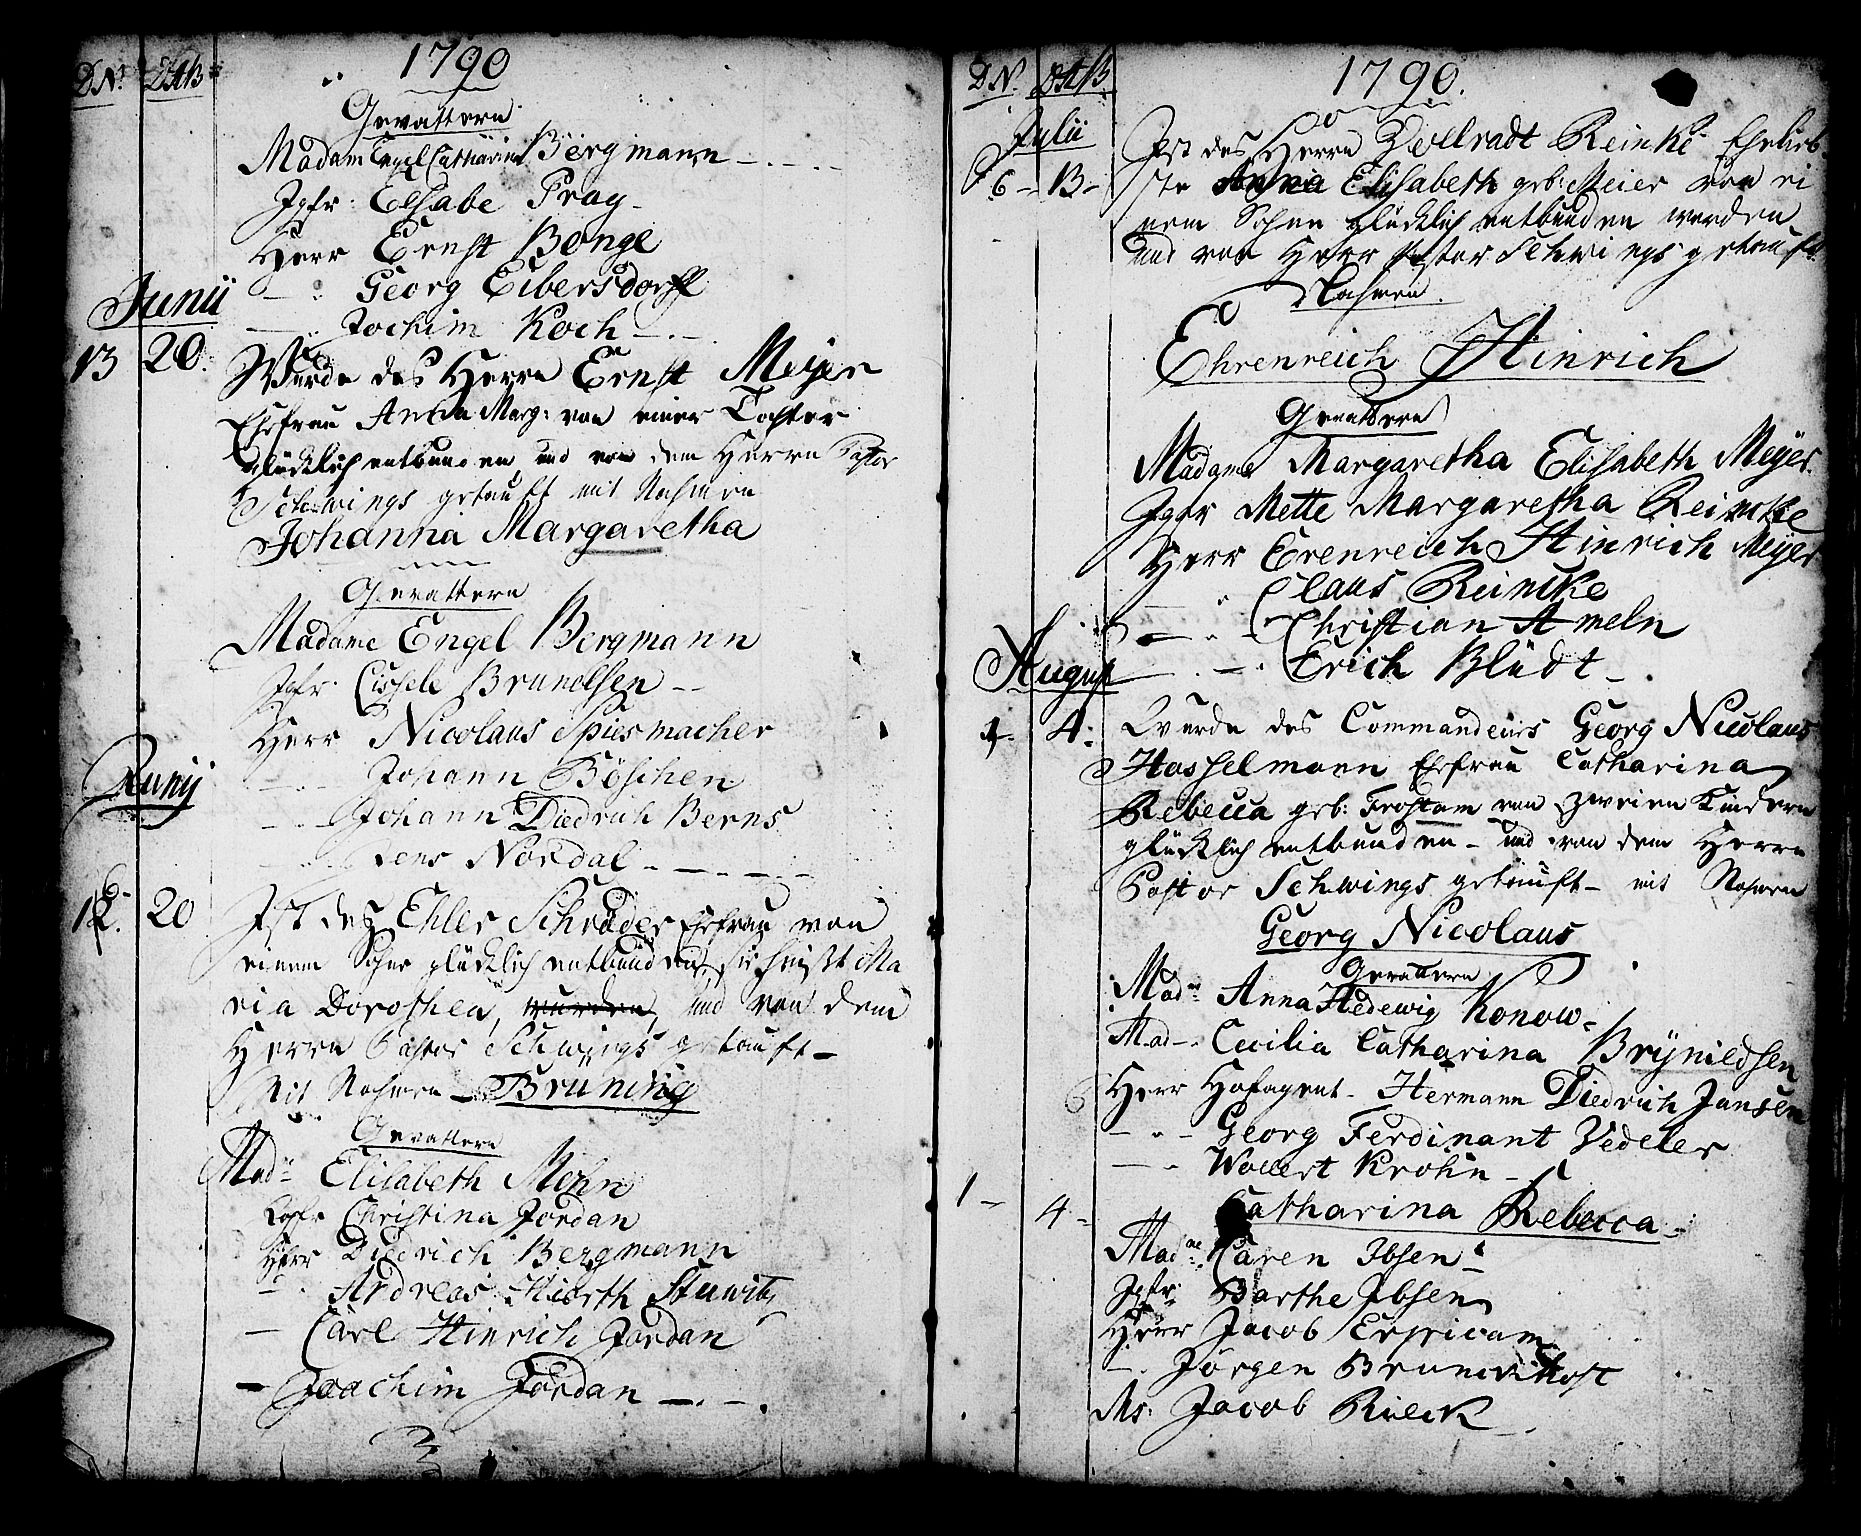 D. N. D. A. B.
1790
Gevattern
Madam Engel Catharina Bergmann
Jgfr. Elsabe Pray
Herr Ernst Bonge
Georg Eibersdorff
Junii
Jochim Koch
13 20. Wurde des Herrn Ernst Meyer
Ehefrau Anna Marg: von einer Tochter
glücklich entbunden, und von dem Herrn Pastor
Schwings getauft mit Nahmen
Johanna Margaretha
Gevattern
Madame Engel Bergmann
Jgfr. Cissele Brunelsen
Herr Nicolaus Spiesmacher
Junij
Johann Böschen
Johann Diedrich Berns
Jens Nordal
20 Ist des Ehler Schröder Ehefrau von
einem Sohne glücklich entbunden, sie heißt Ma
ria Dorothea, wurden, und von dem
Herrn Pastor Schwings getauft
Mit Nahmen Bruning
Gevattern
Mad. Elisabeth Mohn
Jgfr Christina Jordan
Herr Diedrich Bergmann
Andreas Hiorth Stuwitz
Carl Hinrich Jordan
Joachim Jordan
D. N. D. A. B.
1790.
Julii
6 13 Ist des Herrn Vollradt Reinke Eheliеb
ste Anna Elisabeth geb: Meier von ei
nem Sohne glücklich entbunden worden
und von Herr Pastor Schwings getauft
Nahmen
Ehrenreich Hinrich
Gevattern
Madame Margaretha Elisabeth Meyer.
Jgfr Mette Margaretha Reincke
Herr Erenreich Hinrich Meyer
Claus Reincke
Christian Ameln
August
Erich Blüdt
1. 4. Wurde des Commandeurs Georg Nicolaus
Hasselmann Ehefrau Catharina
Rebecca geb: Frostam von zweien Kindern
glücklich entbunden und von dem Herrn
Pastor Schwings getauft mit Nahmen
Georg Nicolaus
Gevattern
Mad. Anna Hedewig Konow
Mad. Cecilia Catharina Brynieldsen
Herr Hofagent Hermann Diedrich Jansen
Georg Ferdinant Vedeler
Wollert Krohn
1 4 Catharina Rebecca
Mad. Caren Ibsen
Jgfr. Barthe Ibsen
Herr Jacob Erpicam
Jörgen Brunckhost
Ms. Jacob Rieck